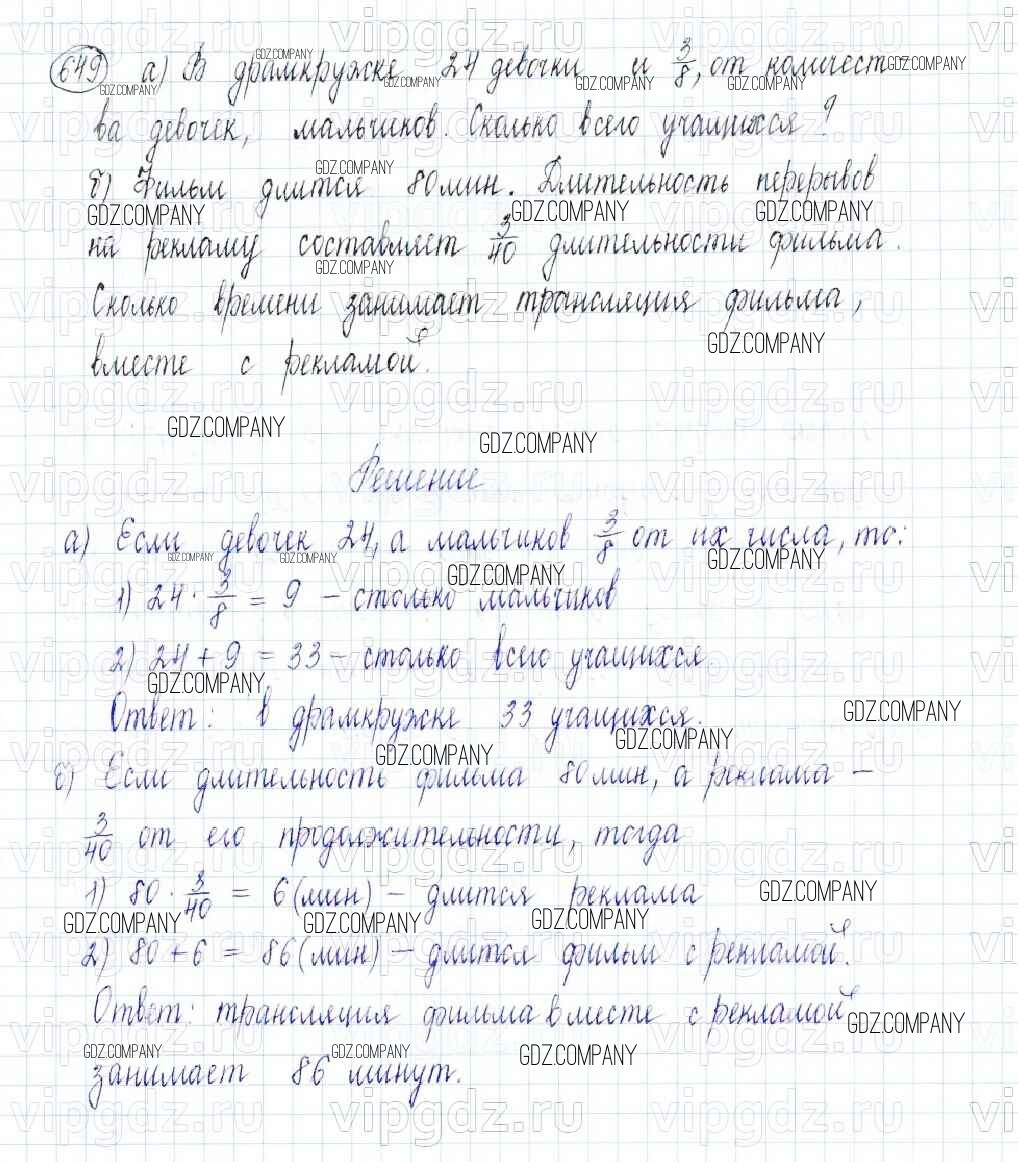 649 а) В драмкружке 24 девочки и 3/8, от количест-
ва девочек, мальчиков. Сколько всего учащихся?
б) Фильм длится 80 мин. Длительность перерывов
на рекламу составляет 3/40 длительности фильма.
Сколько времени занимает трансляция фильма,
вместе с рекламой.
Решение
а) Если девочек 24, а мальчиков 3/8 от их числа, то:
1) 24 · 3/8 = 9 – столько мальчиков
2) 24 + 9 = 33 – столько всего учащихся.
Ответ: в драмкружке 33 учащихся.
б) Если длительность фильма 80 мин, а реклама –
3/40 от его продолжительности, тогда
1) 80 · 3/40 = 6 (мин) – длится реклама
2) 80 + 6 = 86 (мин) – длится фильм с рекламой.
Ответ: трансляция фильма вместе с рекламой
занимает 86 минут.
GDZ.COMPANY
vipgdz.ru